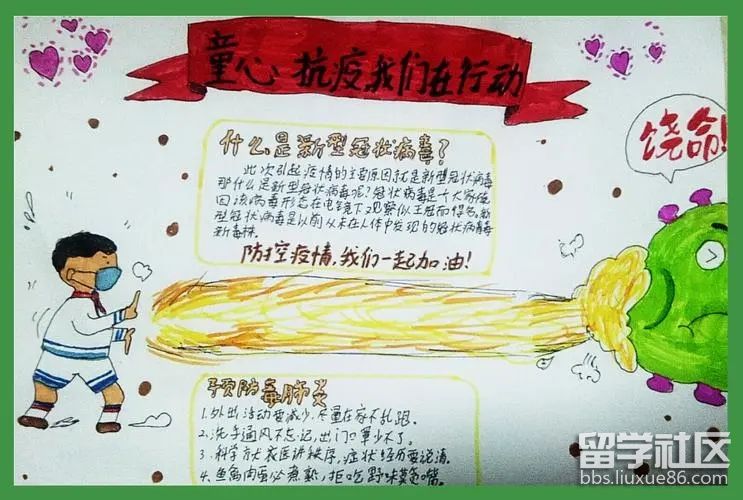 童心 抗疫我们在行动
什么是新型冠状病毒?
此次引起疫情的主要原因就是新型冠状病毒
那什么是新型冠状病毒呢?冠状病毒是个大家族
因该病毒形态在电镜下观察似王冠而得名,新
型冠状病毒是以前从未在人体中发现的冠状病毒
新毒株。
防控疫情,我们一起加油!
饶命!
预防毒肺炎
1.外出活动要减少,尽量在家不乱跑。
2.洗手通风不忘记,出门口罩少不了。
3.科学就医讲秩序,症状经历要说清。
4.鱼禽肉蛋必煮熟,拒吃野味
留学社区
bbs.liuxue86.com